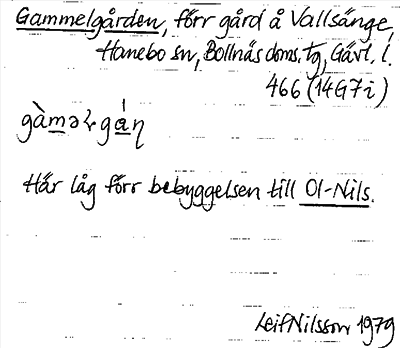 Gammelgården, förr gård å Vallsänge,
Hanebo sn, Bollnäs doms. tg, Gävl. l.
466 (14G7i)
gàmə gáɳ
Här låg förr bebyggelsen till Ol-Nils.
Leif Nilsson 1979